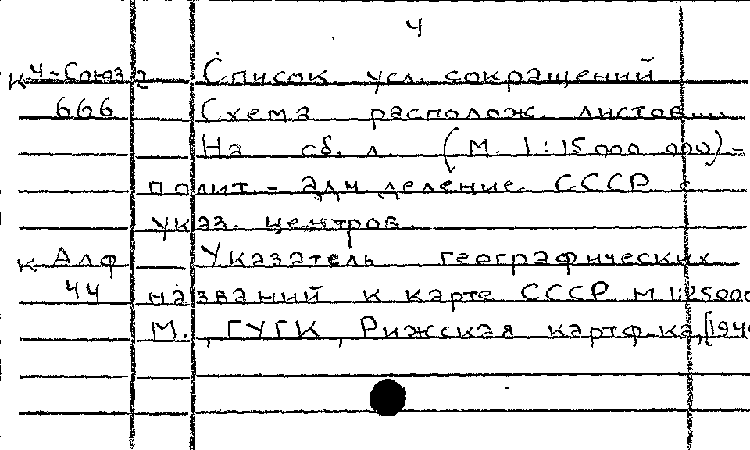 4
К Ч-Союза Список усл. сокращений
666 Схема располож. листов...
На сб. л. (М. 1:15 000 000) -
полит - адм деление СССР с
указ. центров
К-Алф Указатель географических
44 названий к карте СССР М 1:25000
М., ГУГК, Рижская картф-ка, [194